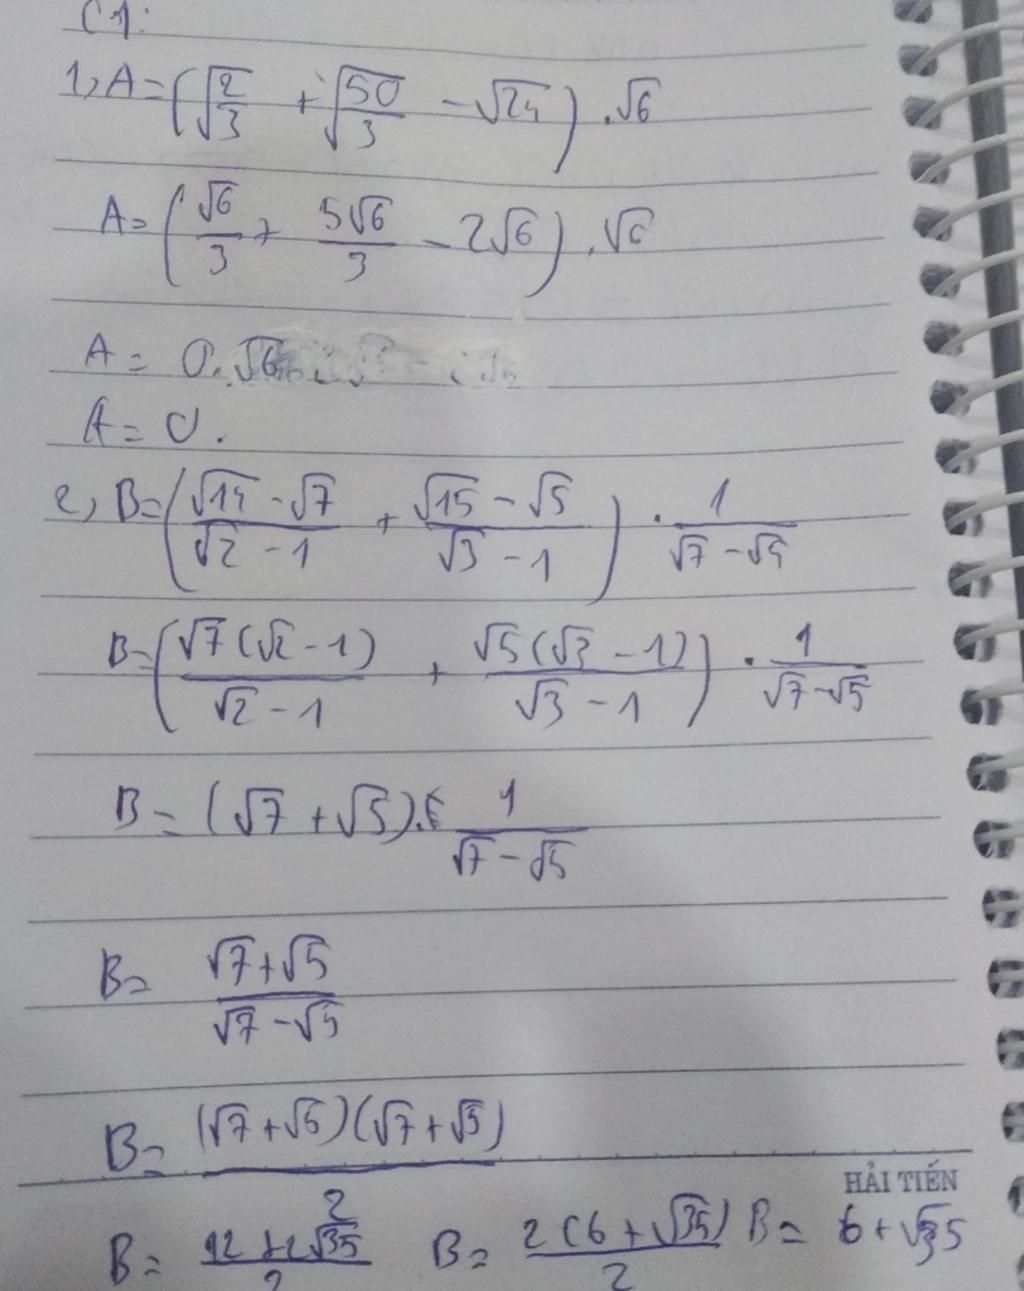 C1:
1, A = (√(2/3) + √(50/3) - √24) . √6
A = (√6/3 + 5√6/3 - 2√6) . √6
A = 0. √6
A = 0.
2, B = ((√14 - √7)/(√2 - 1) + (√15 - √5)/(√3 - 1)) . 1/(√7 - √5)
B = (√7(√2 - 1)/(√2 - 1) + √5(√3 - 1)/(√3 - 1)) . 1/(√7 - √5)
B = (√7 + √5). 1/(√7 - √5)
B = (√7 + √5)/(√7 - √5)
B = (√7 + √5)(√7 + √5)/2
HẢI TIẾN
B = (12 + 2√35)/2 B = 2(6 + √35)/2 B = 6 + √35